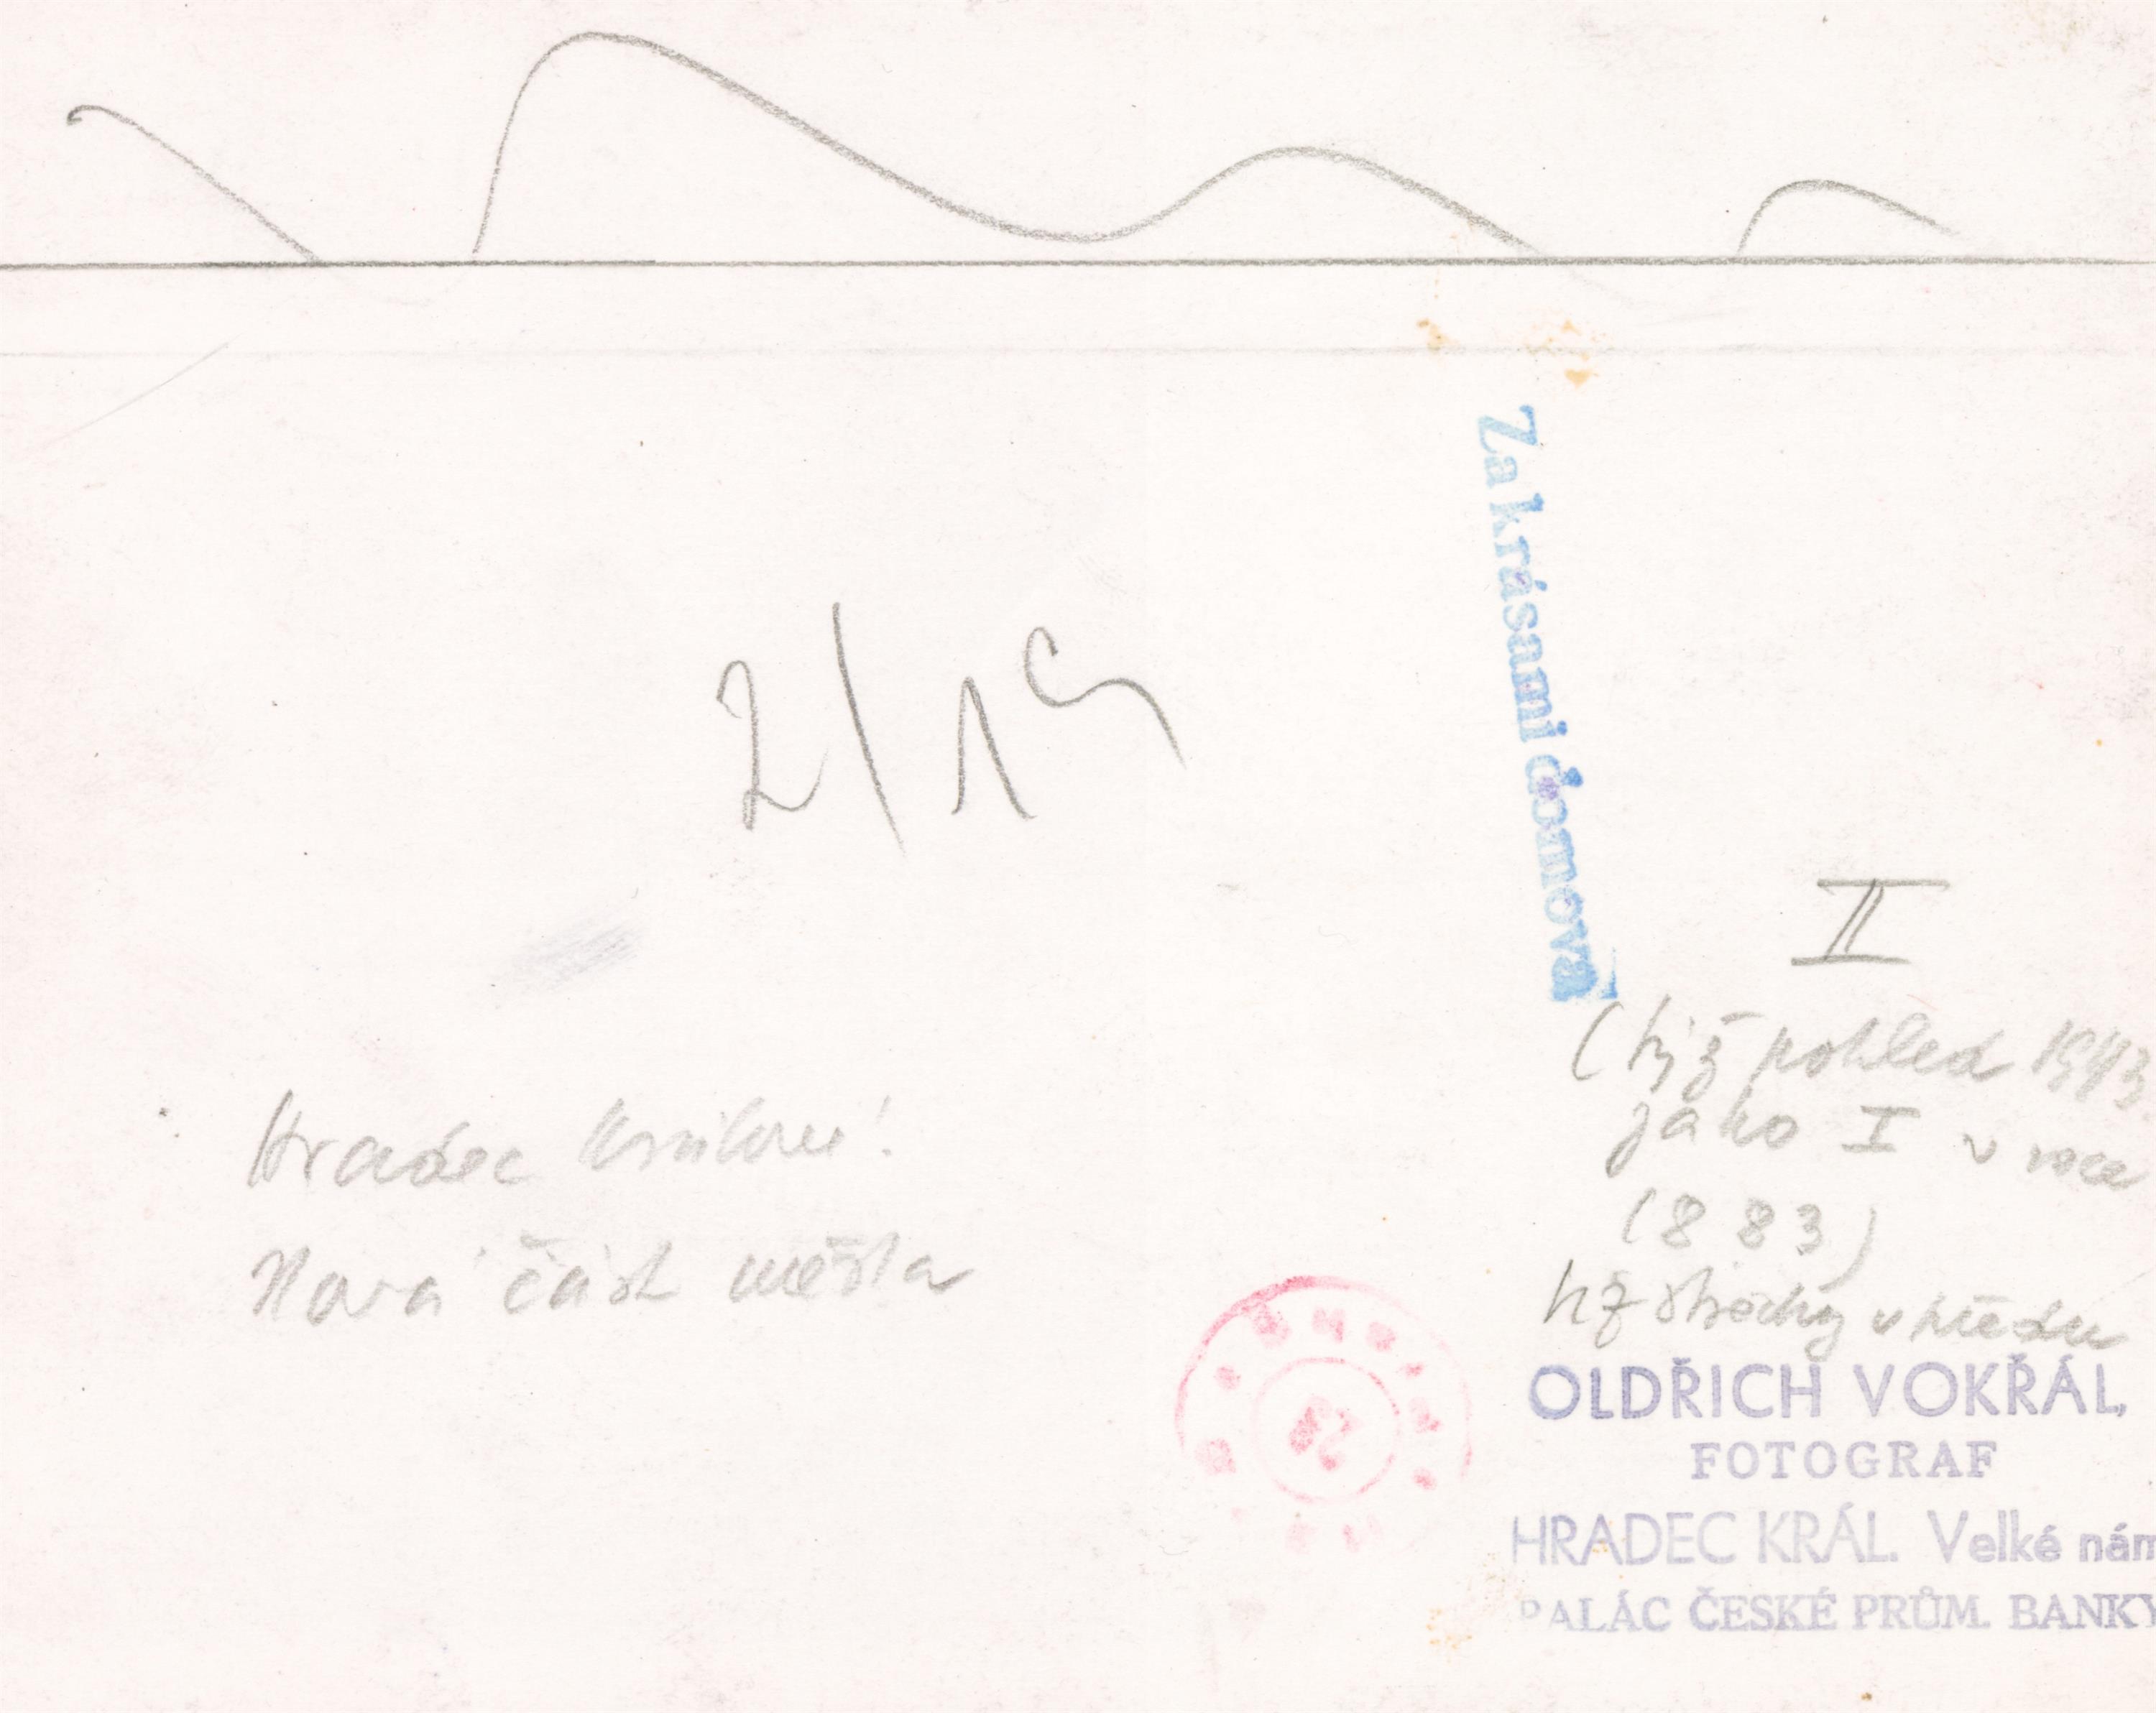 2/19
Za krásami domova
II
(týž pohled 1943
jako I v roce
1883)
Hradec Králové!
Nová část města
OLDŘICH VOKŘÁL,
FOTOGRAF
HRADEC KRÁL. Velké nám
PALÁC ČESKÉ PRŮM. BANKY